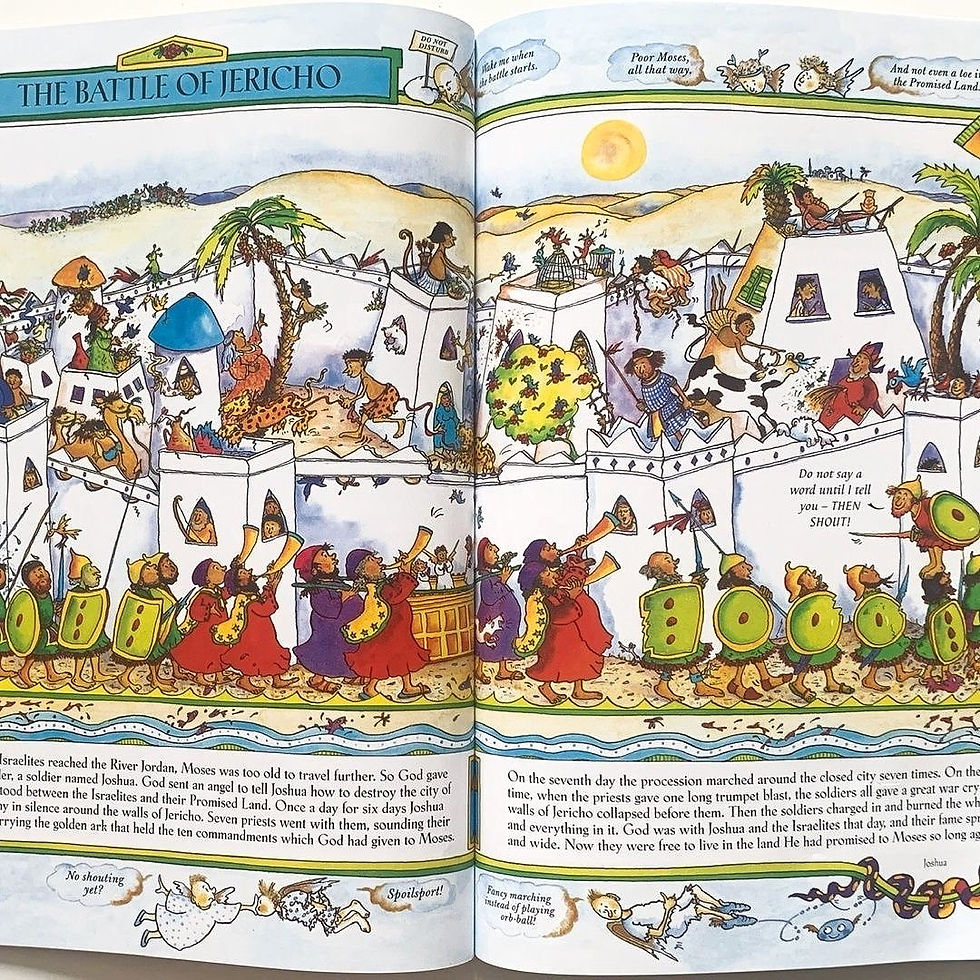 THE BATTLE OF JERICHO
DO NOT
DISTURB
Wake me when
the battle starts.
Poor Moses,
all that way,
And not even a toe i
the Promised Land.
Do not say a
word until I tell
you – THEN
SHOUT!
Israelites reached the River Jordan, Moses was too old to travel further. So God gave
er, a soldier named Joshua. God sent an angel to tell Joshua how to destroy the city of
tood between the Israelites and their Promised Land. Once a day for six days Joshua
ny in silence around the walls of Jericho. Seven priests went with them, sounding their
rrying the golden ark that held the ten commandments which God had given to Moses.
On the seventh day the procession marched around the closed city seven times. On the
time, when the priests gave one long trumpet blast, the soldiers all gave a great war cry
walls of Jericho collapsed before them. Then the soldiers charged in and burned the wh
and everything in it. God was with Joshua and the Israelites that day, and their fame sp
and wide. Now they were free to live in the land He had promised to Moses so long ag
Joshua
No shouting
yet?
Spoilsport!
Fancy marching
instead of playing
orb-ball!